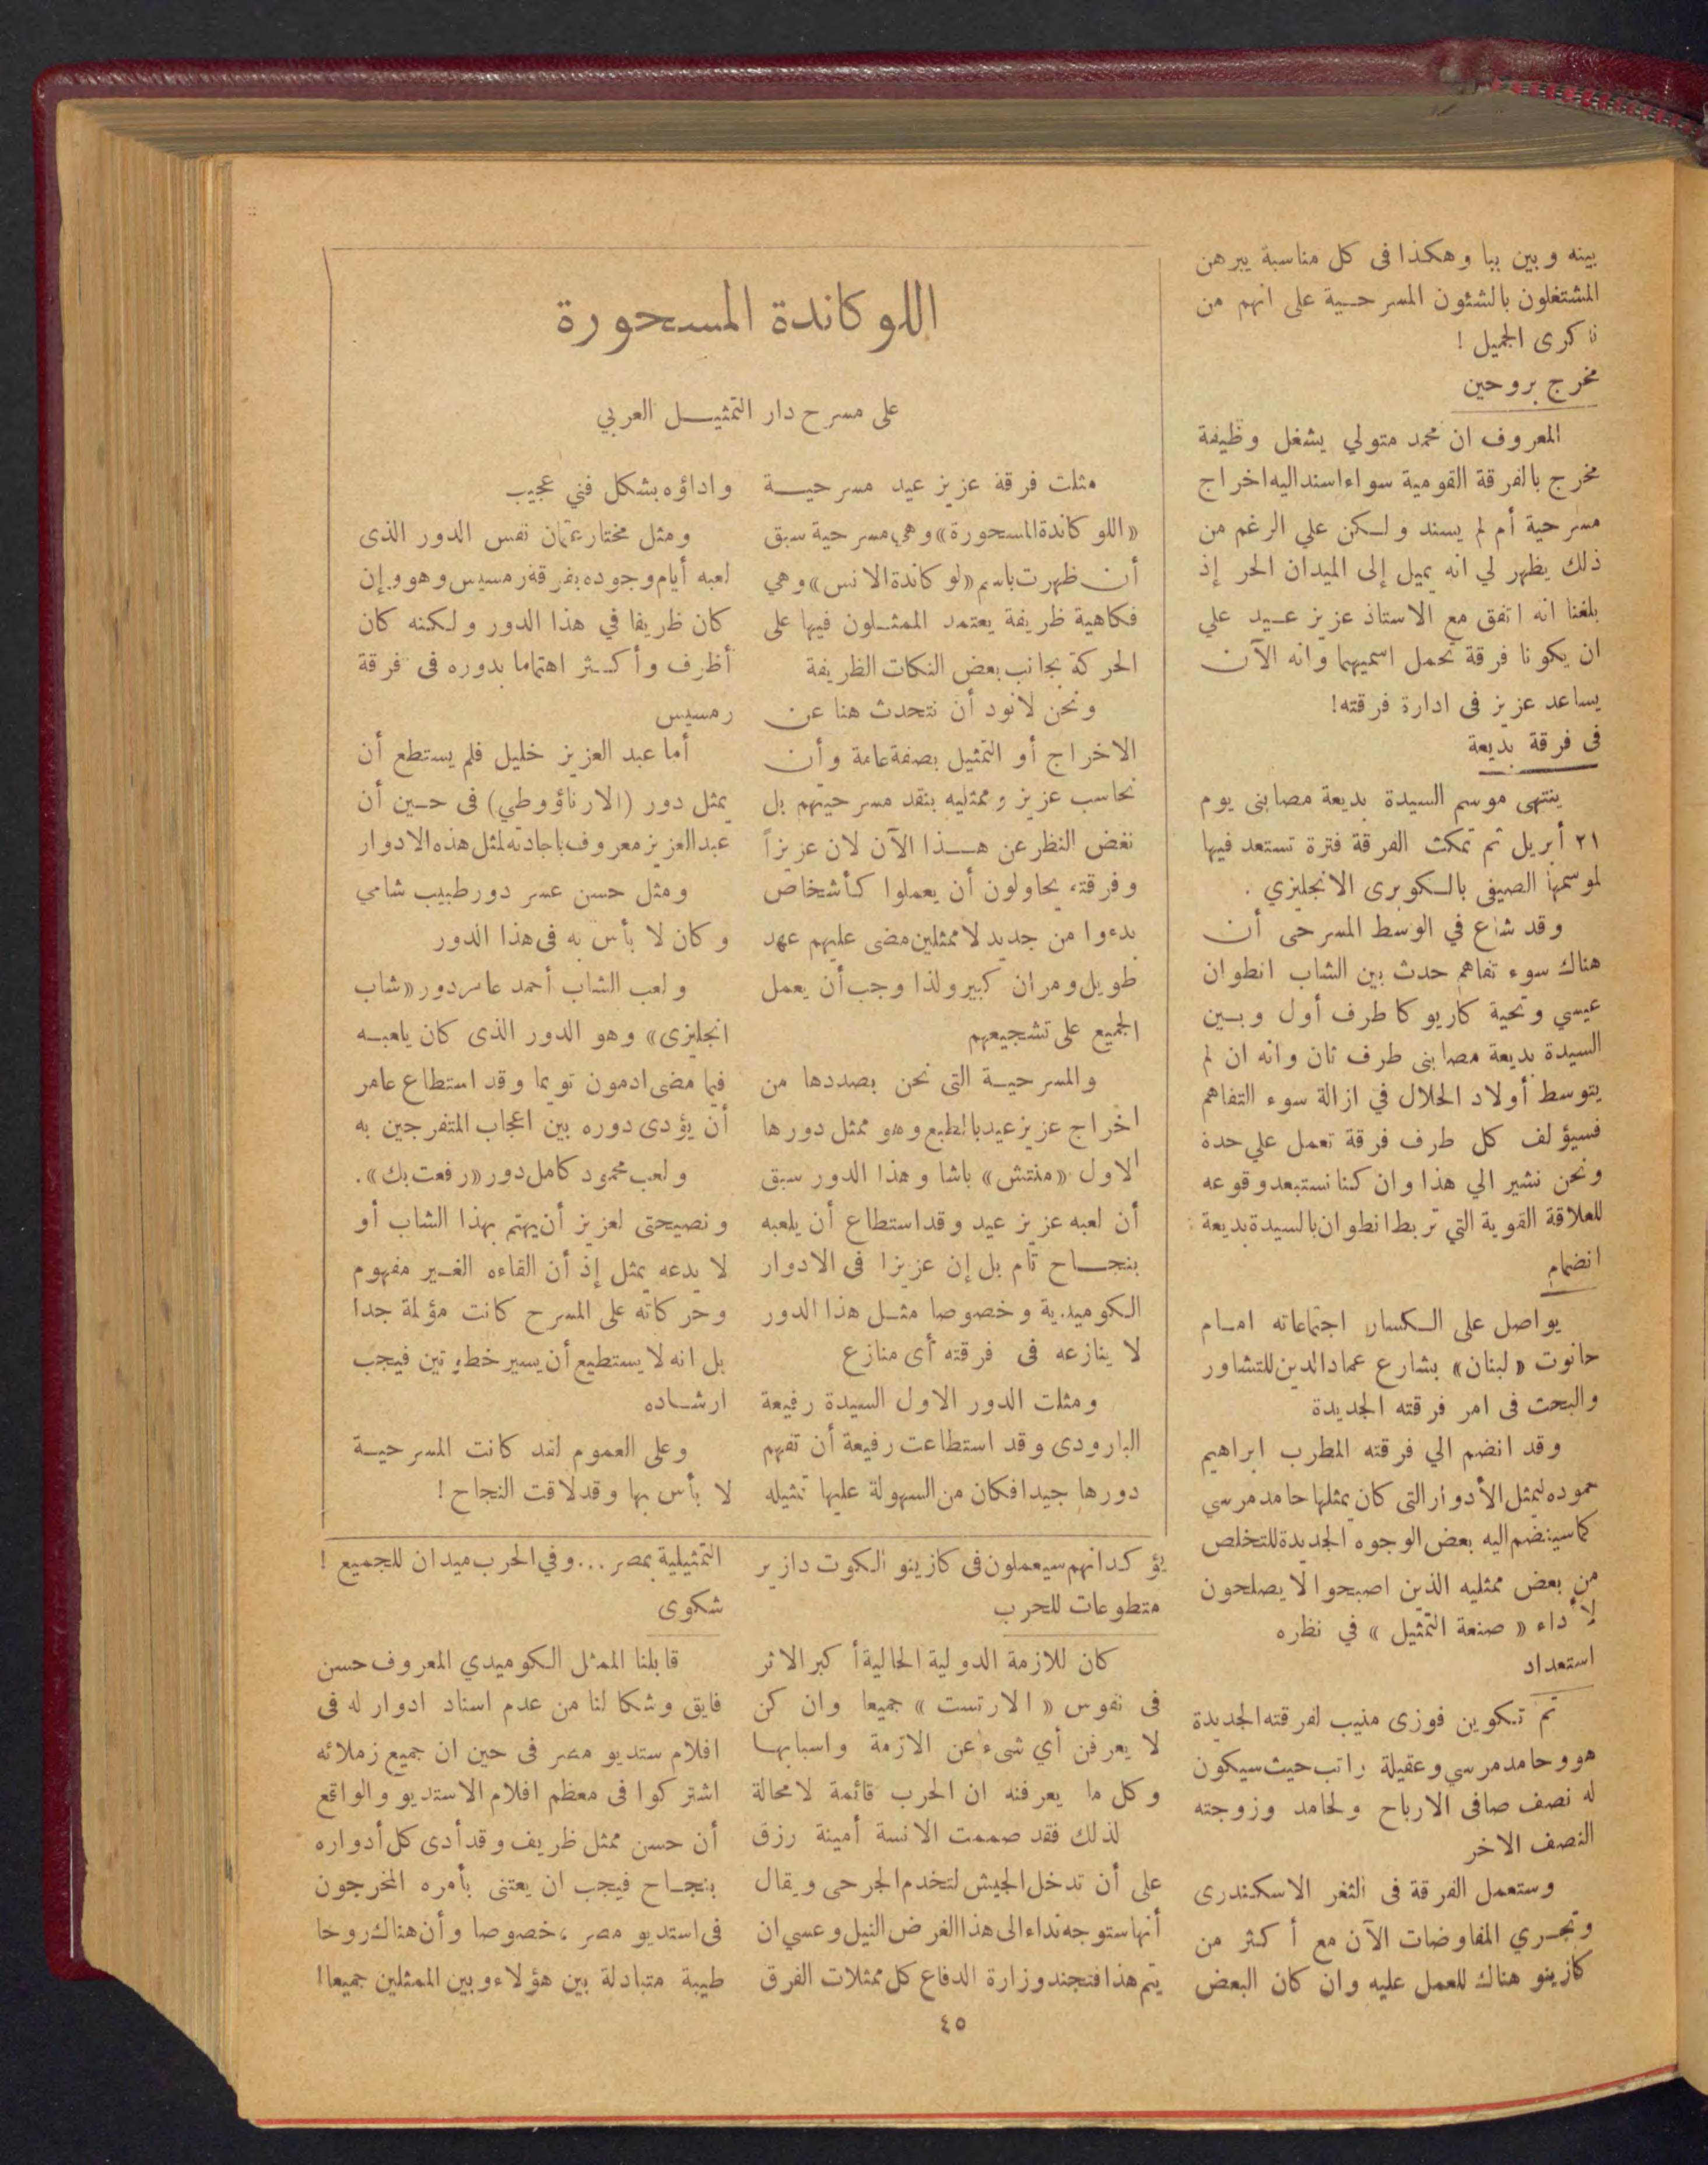 بينه وبين ببا وهكذا فى كل مناسبة يبرهن
المشتغلون بالشئون المسرحية على انهم من
ناكرى الجميل !
مخرج بروحين
المعروف ان محمد متولي يشغل وظيفة
مخرج بالفرقة القومية سواء اسند اليه اخراج
مسرحية أم لم يسند ولكن علي الرغم من
ذلك يظهر لي انه يميل إلى الميدان الحر إذ
بلغنا انه اتفق مع الاستاذ عزيز عيد علي
ان يكونا فرقة تحمل اسميهما وانه الآن
يساعد عزيز فى ادارة فرقته!
فى فرقة بديعة
ينتهى موسم السيدة بديعة مصابنى يوم
٢١ أبريل ثم تمكث الفرقة فترة تستعد فيها
لموسمها الصيفى بالكوبرى الانجليزي .
وقد شاع في الوسط المسرحى أن
هناك سوء تفاهم حدث بين الشاب انطوان
عيسي وتحية كاريوكا طرف أول وبين
السيدة بديعة مصابنى طرف ثان وانه ان لم
يتوسط أولاد الحلال في ازالة سوء التفاهم
فسيؤلف كل طرف فرقة تعمل علي حدة
ونحن نشير الي هذا وان كنا نستبعد وقوعه
للعلاقة القوية التي تربط انطوان بالسيدة بديعة
انضمام
يواصل على الكسار اجتماعاته امام
حانوت «لبنان» بشارع عماد الدين للتشاور
والبحث فى امر فرقته الجديدة
وقد انضم الي فرقته المطرب ابراهيم
حموده ليمثل الأدوار التى كان يمثلها حامد مرسي
كما سينضم اليه بعض الوجوه الجديدة للتخلص
من بعض ممثليه الذين اصبحوا لا يصلحون
لأداء « صنعة التمثيل » في نظره
استعداد
تم تكوين فوزى منيب لفرقته الجديدة
هو وحامد مرسي وعقيلة راتب حيث سيكون
له نصف صافى الارباح ولحامد وزوجته
النصف الاخر
وستعمل الفرقة فى الثغر الاسكندرى
وتجري المفاوضات الآن مع أكثر من
كازينو هناك للعمل عليه وان كان البعض
اللوكاندة المسحورة
على مسرح دار التمثيل العربي
مثلت فرقة عزيز عيد مسرحية
«اللوكاندة المسحورة» وهي مسرحية سبق
أن ظهرت باسم «لوكاندة الانس» وهي
فكاهية ظريفة يعتمد الممثلون فيها على
الحركة بجانب بعض النكات الظريفة
ونحن لانود أن نتحدث هنا عن
الاخراج أو التمثيل بصفة عامة وأن
نحاسب عزيز وممثليه بنقد مسرحيتهم بل
نغض النظر عن هذا الآن لان عزيزاً
وفرقته يحاولون أن يعملوا كأشخاص
بدءوا من جديد لا ممثلين مضى عليهم عهد
طويل ومران كبير ولذا وجب أن يعمل
الجميع على تشجيعهم
والمسرحية التى نحن بصددها من
اخراج عزيز عيد بالطبع وهو ممثل دورها
الاول «منتش» باشا وهذا الدور سبق
أن لعبه عزيز عيد وقد استطاع أن يلعبه
بنجاح تام بل إن عزيزا فى الادوار
الكوميدية وخصوصا مثل هذا الدور
لا ينازعه فى فرقته أى منازع
ومثلت الدور الاول السيدة رفيعة
البارودى وقد استطاعت رفيعة أن تفهم
دورها جيدا فكان من السهولة عليها تمثيله
واداؤه بشكل فني عجيب
ومثل مختار عثمان نفس الدور الذى
لعبه أيام وجوده بفرقة رمسيس وهو وإن
كان ظريفا في هذا الدور ولكنه كان
أظرف وأكثر اهتماما بدوره فى فرقة
رمسيس
أما عبد العزيز خليل فلم يستطع أن
يمثل دور (الارناؤوطي) فى حين أن
عبد العزيز معروف باجادته لمثل هذه الادوار
ومثل حسن عسر دور طبيب شامي
وكان لا بأس به فى هذا الدور
ولعب الشاب أحمد عامر دور «شاب
انجليزى» وهو الدور الذى كان يلعبه
فيما مضى ادمون تويما وقد استطاع عامر
أن يؤدى دوره بين اعجاب المتفرجين به
ولعب محمود كامل دور «رفعت بك».
ونصيحتى لعزيز أن يهتم بهذا الشاب أو
لا يدعه يمثل إذ أن القاءه الغير مفهوم
وحركاته على المسرح كانت مؤلمة جدا
بل انه لا يستطيع أن يسير خطوتين فيجب
ارشاده
وعلى العموم لقد كانت المسرحية
لا بأس بها وقد لاقت النجاح !
يؤكد انهم سيعملون فى كازينو الكوت دازير
متطوعات للحرب
كان للازمة الدولية الحالية أكبر الاثر
فى نفوس « الارتست » جميعا وان كن
لا يعرفن أي شىء عن الازمة واسبابها
وكل ما يعرفنه ان الحرب قائمة لا محالة
لذلك فقد صممت الانسة أمينة رزق
على أن تدخل الجيش لتخدم الجرحى ويقال
أنها ستوجه نداء الى هذا الغرض النبيل وعسي ان
يتم هذا فتجند وزارة الدفاع كل ممثلات الفرق
التمثيلية بمصر ... وفي الحرب ميدان للجميع !
شكوى
قابلنا الممثل الكوميدي المعروف حسن
فايق وشكا لنا من عدم اسناد ادوار له فى
افلام ستديو مصر فى حين ان جميع زملائه
اشتركوا فى معظم افلام الاستديو والواقع
أن حسن ممثل ظريف وقد أدى كل أدواره
بنجاح فيجب ان يعتنى بأمره المخرجون
فى استديو مصر ، خصوصا وأن هناك روحا
طيبة متبادلة بين هؤلاء وبين الممثلين جميعا!
٤٥